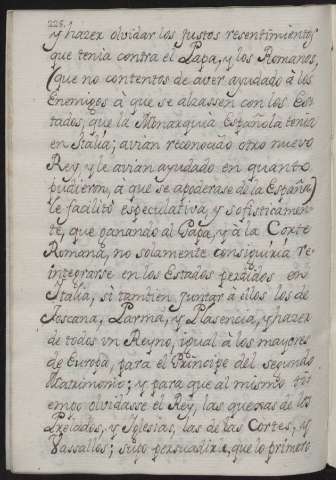 226.
y hazer olvidar los justos resentimientos
que tenia contra el Papa, y los Romanos,
(que no contentos de aver ayudado à los
Enemigos à que se alzassen con los Es-
tados, que la Monarquia Española tenia
en Italia; avian reconocido otro nuevo
Rey, y le avian ayudado en quanto
pudieron, a que se apoderase de la España)
le facilitò especulativa, y sofisticamen-
te, que ganando al Papa, y à la Corte
Romana, no solamente consiguiria re-
integrarse en los Estados perdidos en
Italia, si tambien juntar à ellos los de
Toscana, Parma, y Plasencia, y hazer
de todos un Reyno, igual à los mayores
de Europa, para el Principe del segundo
Matrimonio; y para que al mismo ti-
empo olvidasse el Rey, las quexas de los
Prelados, y Iglesias, las de las Cortes, y
Vassallos; supo persuadirle, que lo primero